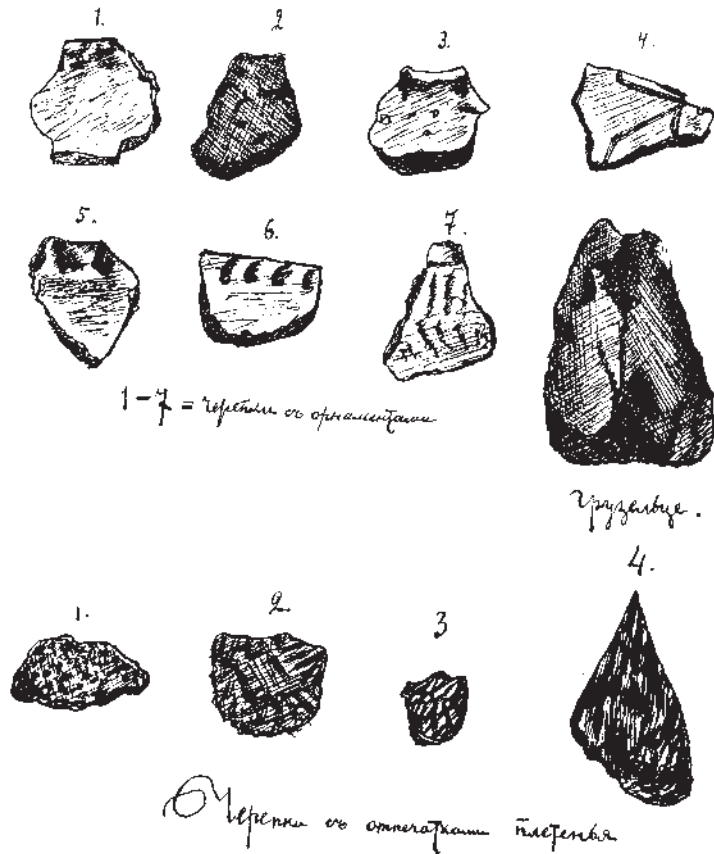 1. 2 3. 4.
5. 6. 7.
1-7 = черепки съ орнаментами
Грузельце.
1. 2. 3 4.
Черепки съ отпечатками плетенья